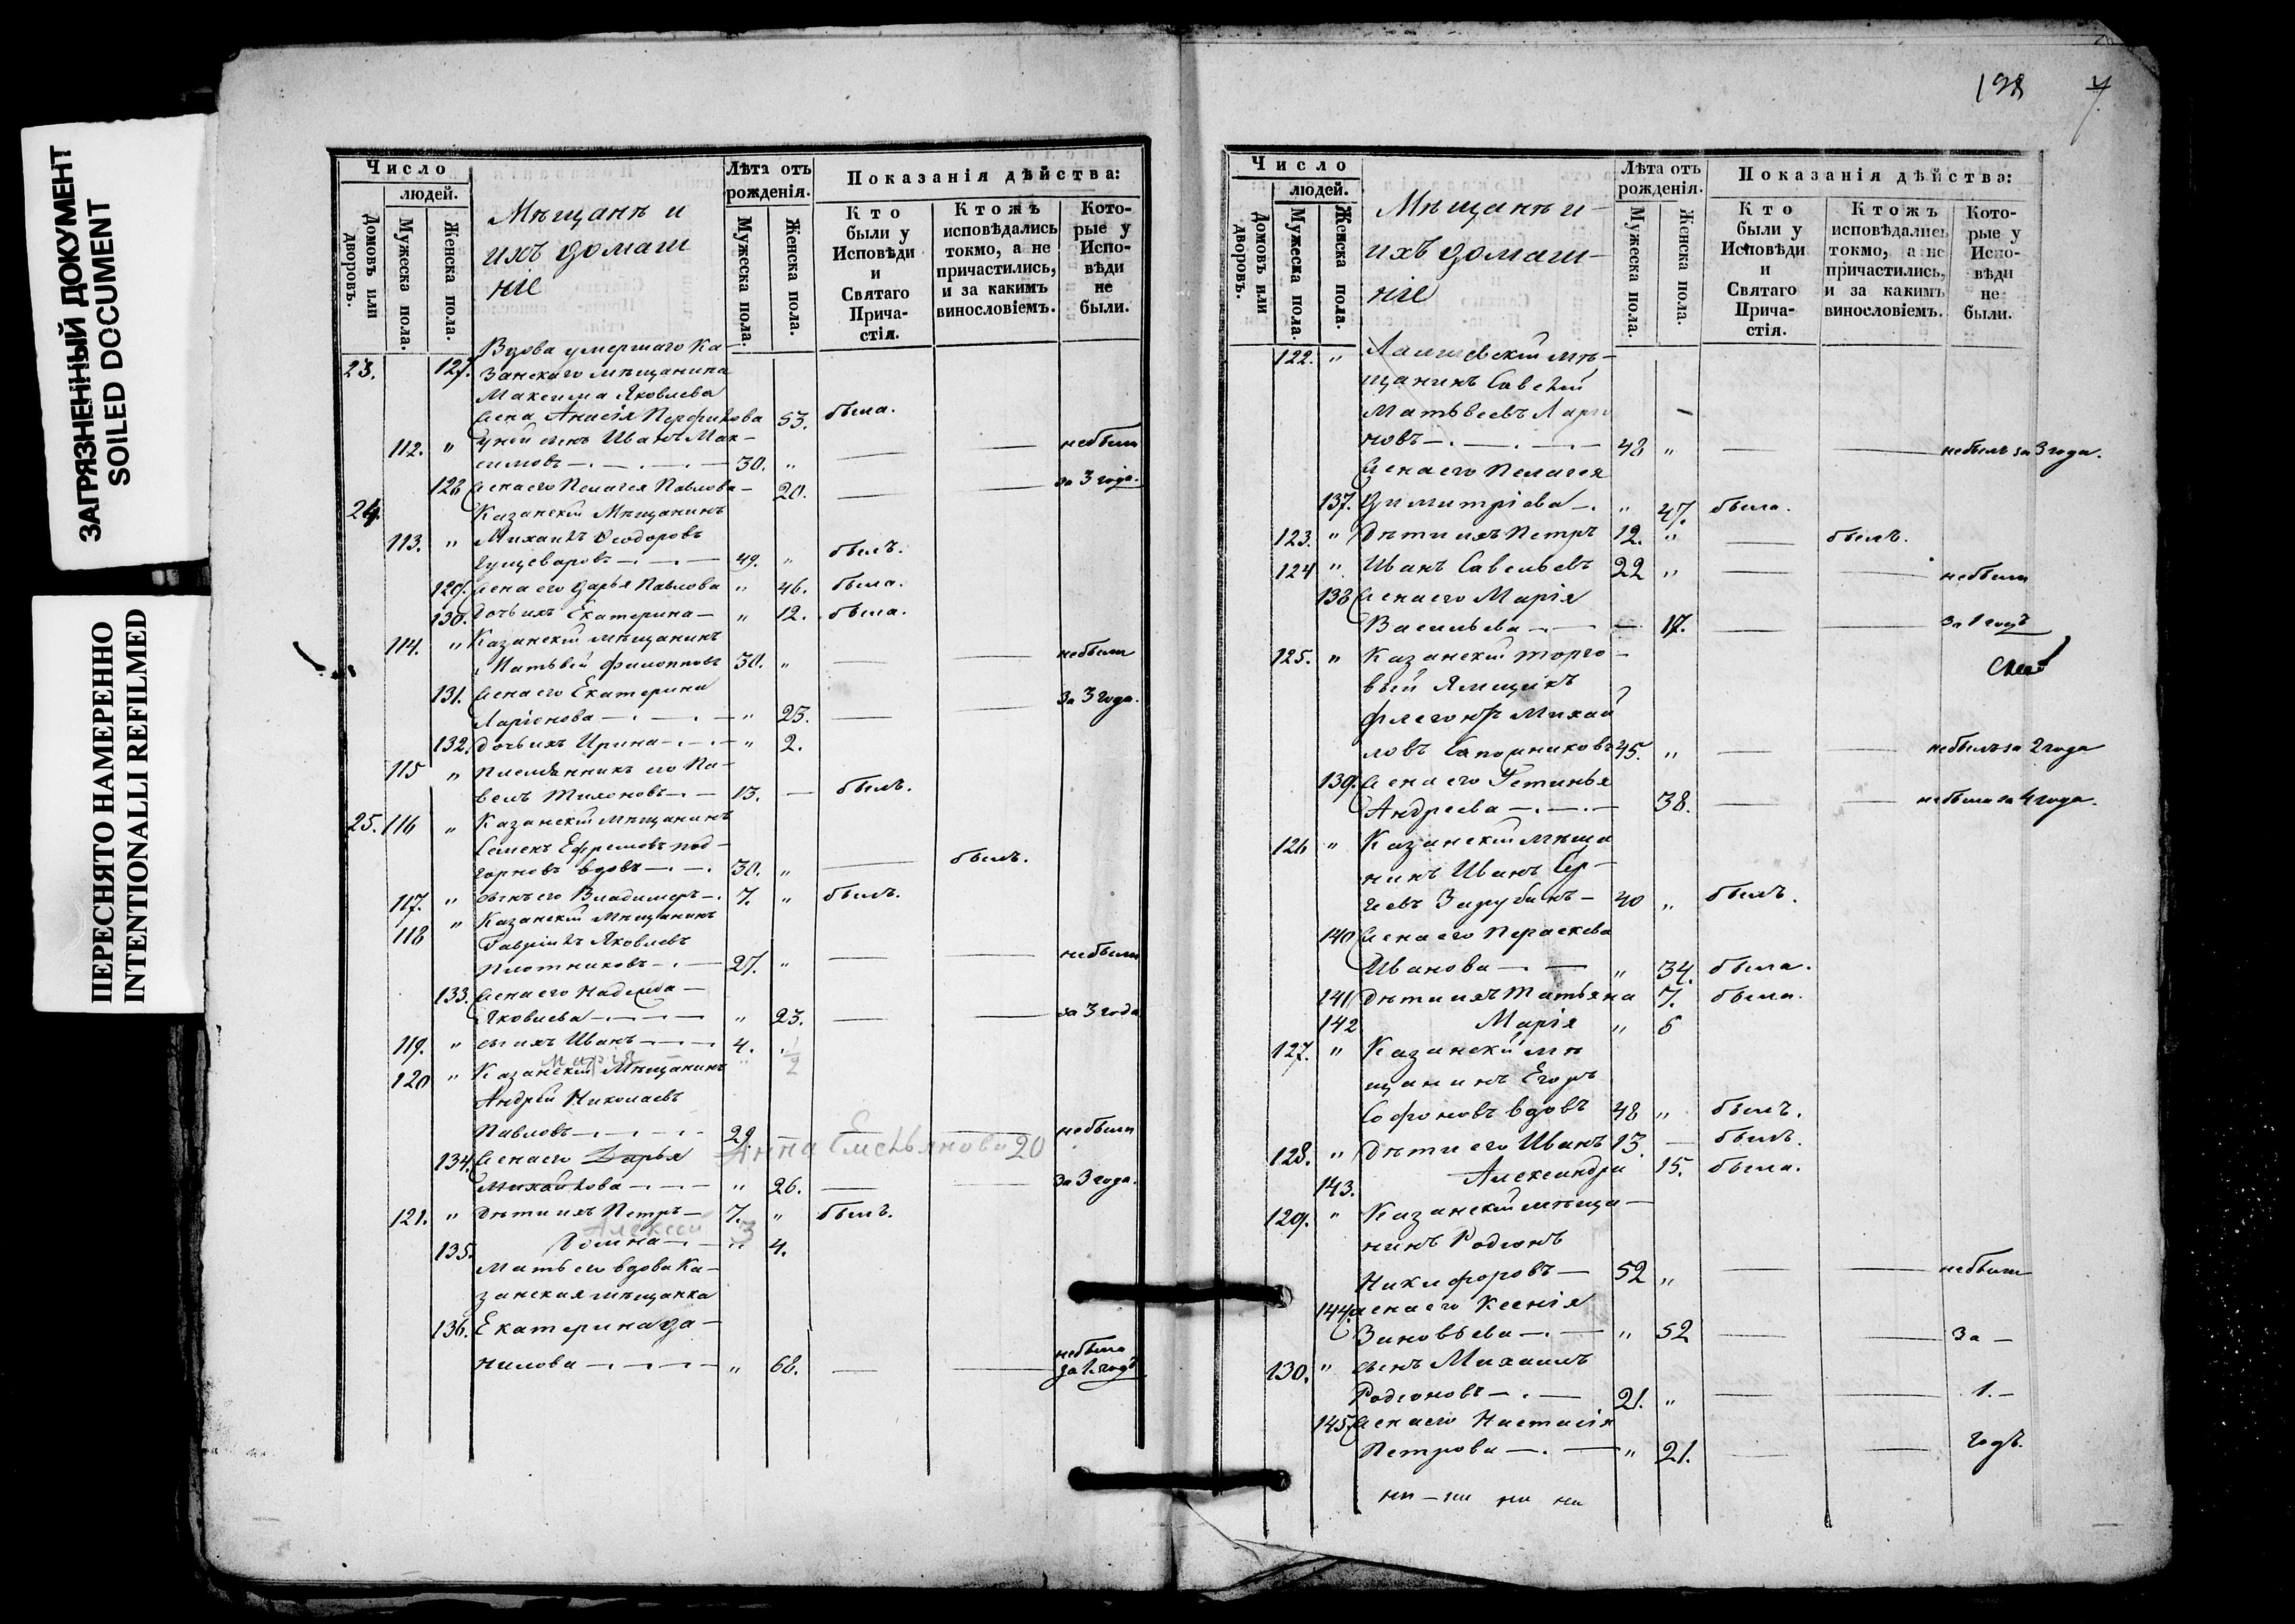 ЗАГРЯЗНЕННЫЙ ДОКУМЕНТ
SOILED DOCUMENT
ПЕРЕСНЯТО НАМЕРЕННО
INTENTIONALLI REFILMED
Число
людей.
Домовъ или дворовъ.
Мужеска пола.
Женска пола.
Мѣщанъ и
ихъ домаш
ніе
Лѣта отъ
рожденія.
Мужеска пола.
Женска пола.
Показанія дѣйства:
Кто
были у
Исповѣди
и
Святаго
Прича-
стія.
Ктожъ
исповѣдались
токмо, а не
причастились,
и за какимъ
винословіемъ.
Кото-
рые у
Испо-
вѣди
не
были.
Вдова умершаго Ка-
23. 127. занскаго мѣщанина
Максима Яковлева
жена Анисія Перфилова 53. была.
112. " уней сынъ Иванъ Мак- небыли
симовъ 30. "
128 жена его Пелагея Павлова 20. за 3 года.
24. Казанскій Мѣщанинъ
113. " Михаилъ Феодоровъ
49. " былъ.
129. жена его Дарья Павлова " 46. была.
130. дочь ихъ Екатерина " 12. была.
114. " Казанскій мѣщанинъ
Матвѣй Филипповъ 30. " небыли
131. жена его Екатерина
Ларіонова " 23. за 3 года.
132. дочь ихъ Ирина " 2.
115 " племянникъ его Па-
велъ Тихоновъ 13. — былъ.
25. 116 " Казанскій мѣщанинъ
Семенъ Ефремовъ Под-
горновъ вдовъ 30. " былъ.
117. " сынъ его Владимеръ 7. " былъ.
118 " Казанскій мѣщанинъ
Гавріилъ Яковлевъ
Плотниковъ 27. " небыли
133. жена его Надежда
Яковлева " 23. за 3 года
119. " сынъ ихъ Иванъ 4. "
Марія 1/2
120 " Казанскій Мѣщанинъ
Андрей Николаевъ
Павловъ 29. небыли
Анна Емельянова 20
134. жена его Дарья
Михайлова " 26. за 3 года.
121. " дѣти ихъ Петръ 7. " былъ.
Алексей 3
135. " 4.
Мать его вдова Ка-
занская мѣщанка
136. Екатерина Да-
нилова " 68. небыла
за 1. годъ
198
Число
людей.
Домовъ или дворовъ.
Мужеска пола.
Женска пола.
Мѣщанъ и
ихъ домаш-
ніе
Лѣта отъ
рожденія.
Мужеска пола.
Женска пола.
Показанія дѣйства:
Кто
были у
Исповѣди
и
Святаго
Прича-
стія.
Ктожъ
исповѣдались
токмо, а не
причастились,
и за какимъ
винословіемъ.
Кото-
рые у
Испо-
вѣди
не
были.
122. " Лаишевскій мѣ-
щанинъ Савелій
Матвеевъ Лари
новъ 48 " небылъ за 3 года.
жена его Пелагея
137. Димитріева " 47. была.
123. " Дѣти ихъ Петръ 12. " былъ.
124 " Иванъ Савельевъ 22 " небыли
138 жена его Марія
Васильева 17. за 1 годъ
125. " Казанскій торго-
вый Ямщикъ
Флегонтъ Михай
ловъ Сапожниковъ 45. " небылъ за 2 года
139. жена его Устинья
Андреева 38. небыла за 4 года.
126 " Казанскій мѣща
нинъ Иванъ Сер-
геевъ Зарубинъ 40 " былъ.
140 жена его Параскева
Иванова " 34. была.
141 дѣти ихъ Татьяна 7. была.
142 Марія " 6
127. " Казанскій мѣ
щанинъ Егоръ
Софоновъ вдовъ 48 " былъ.
128. " Дѣти его Иванъ 13. — былъ.
143. Александра 15. была.
129. " Казанскій мѣща-
нинъ Родіонъ
Никифоровъ 52 " небыли
144. жена его Ксенія
Зиновьева " 52 за
130. " сынъ Михаилъ
Родіоновъ 21. " 1.
145. жена его Настасія
Петрова " 21. годъ.